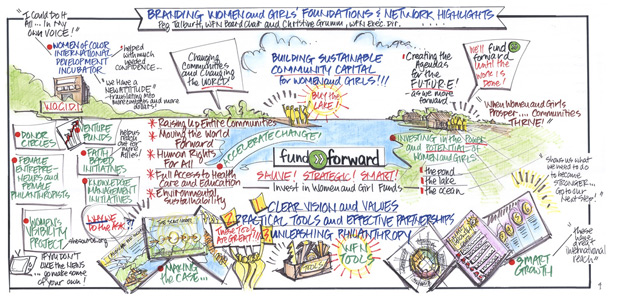 BRANDING WOMEN and GIRLS' FOUNDATIONS & NETWORK HIGHLIGHTS
Peg Talburtt, WFN Board Chair and Christine Grumm, WFN Exec. Dir.
"I could Do it
All... in my
own VOICE!"
WOMEN OF COLOR
INTERNATIONAL
DEVELOPMENT
INCUBATOR
helped
with much
needed
confidence...
WOCIDI
"We Have a
NEW ATTITUDE"
translating into
more contacts and more
dollars!
Changing
Communities
and Changing
the WORLD!
BUILDING SUSTAINABLE
COMMUNITY CAPITAL
for WOMEN and GIRLS!!!
BUY the
LAKE!
Creating the
Agendas
for the
FUTURE!
as we move
forward
We'll fund
forward
Until the
WORK IS
Done!
When Women and Girls
Prosper... Communities
THRIVE!
DONOR
CIRCLES
VENTURE
FUNDS
helps
reach
out for
more
Allies!
FEMALE
ENTREPRE-
NEURS and
FEMALE
PHILANTHROPISTS
FAITH
BASED
INITIATIVES
KNOWLEDGE
MANAGEMENT
INITIATIVES
WOMEN'S
VISIBILITY
PROJECT
shesource.org
I LOVE
to the ASK!!
IF YOU DON'T
LIKE the NEWS
...go make some
of your own!
Raising Up Entire Communities
Moving the World
Forward
Human Rights
For All
Full Access to Health
Care and Education
Environmental
Sustainability
ACCELERATE CHANGE!
fund forward
SAUVE! STRATEGIC! SMART!
Invest in Women and Girl Funds
INVESTING in the POWER
and POTENTIAL of
WOMEN and GIRLS
the pond
the lake
the ocean
Shows us
what we need to do
to become
STRONGER...
Go to our
Next step!
CLEAR VISION and VALUES
PRACTICAL TOOLS and EFFECTIVE PARTNERSHIPS
UNLEASHING PHILANTHROPY
2
3
These TOOLS
are GREAT!!!
MAKING
the CASE...
TOOLS
WFN
TOOLS
SMART
GROWTH
"these
have
great
international
reach"